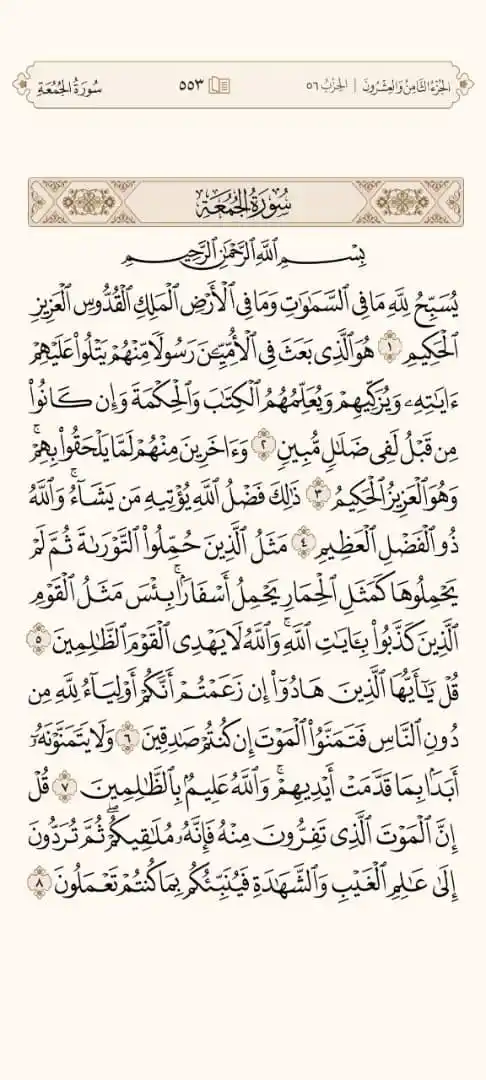 الجُزْءُ الثَّامِنُ وَالعِشْرُونَ | الحِزْبُ ٥٦ ٥٥٣ سُورَةُ الجُمُعَةِ
سُورَةُ الجُمُعَةِ
بِسْمِ ٱللَّهِ ٱلرَّحْمَٰنِ ٱلرَّحِيمِ
يُسَبِّحُ لِلَّهِ مَا فِي ٱلسَّمَٰوَٰتِ وَمَا فِي ٱلْأَرْضِ ٱلْمَلِكِ ٱلْقُدُّوسِ ٱلْعَزِيزِ
ٱلْحَكِيمِ ١ هُوَ ٱلَّذِي بَعَثَ فِي ٱلْأُمِّيِّۦنَ رَسُولًا مِّنْهُمْ يَتْلُوا۟ عَلَيْهِمْ
ءَايَٰتِهِۦ وَيُزَكِّيهِمْ وَيُعَلِّمُهُمُ ٱلْكِتَٰبَ وَٱلْحِكْمَةَ وَإِن كَانُوا۟
مِن قَبْلُ لَفِي ضَلَٰلٍ مُّبِينٍ ٢ وَءَاخَرِينَ مِنْهُمْ لَمَّا يَلْحَقُوا۟ بِهِمْۚ
وَهُوَ ٱلْعَزِيزُ ٱلْحَكِيمُ ٣ ذَٰلِكَ فَضْلُ ٱللَّهِ يُؤْتِيهِ مَن يَشَآءُۚ وَٱللَّهُ
ذُو ٱلْفَضْلِ ٱلْعَظِيمِ ٤ مَثَلُ ٱلَّذِينَ حُمِّلُوا۟ ٱلتَّوْرَىٰةَ ثُمَّ لَمْ
يَحْمِلُوهَا كَمَثَلِ ٱلْحِمَارِ يَحْمِلُ أَسْفَارًۢاۚ بِئْسَ مَثَلُ ٱلْقَوْمِ
ٱلَّذِينَ كَذَّبُوا۟ بِـَٔايَٰتِ ٱللَّهِۚ وَٱللَّهُ لَا يَهْدِي ٱلْقَوْمَ ٱلظَّٰلِمِينَ ٥
قُلْ يَٰٓأَيُّهَا ٱلَّذِينَ هَادُوٓا۟ إِن زَعَمْتُمْ أَنَّكُمْ أَوْلِيَآءُ لِلَّهِ مِن
دُونِ ٱلنَّاسِ فَتَمَنَّوُا۟ ٱلْمَوْتَ إِن كُنتُمْ صَٰدِقِينَ ٦ وَلَا يَتَمَنَّوْنَهُۥٓ
أَبَدًۢا بِمَا قَدَّمَتْ أَيْدِيهِمْۚ وَٱللَّهُ عَلِيمٌۢ بِٱلظَّٰلِمِينَ ٧ قُلْ
إِنَّ ٱلْمَوْتَ ٱلَّذِي تَفِرُّونَ مِنْهُ فَإِنَّهُۥ مُلَٰقِيكُمْۖ ثُمَّ تُرَدُّونَ
إِلَىٰ عَٰلِمِ ٱلْغَيْبِ وَٱلشَّهَٰدَةِ فَيُنَبِّئُكُم بِمَا كُنتُمْ تَعْمَلُونَ ٨